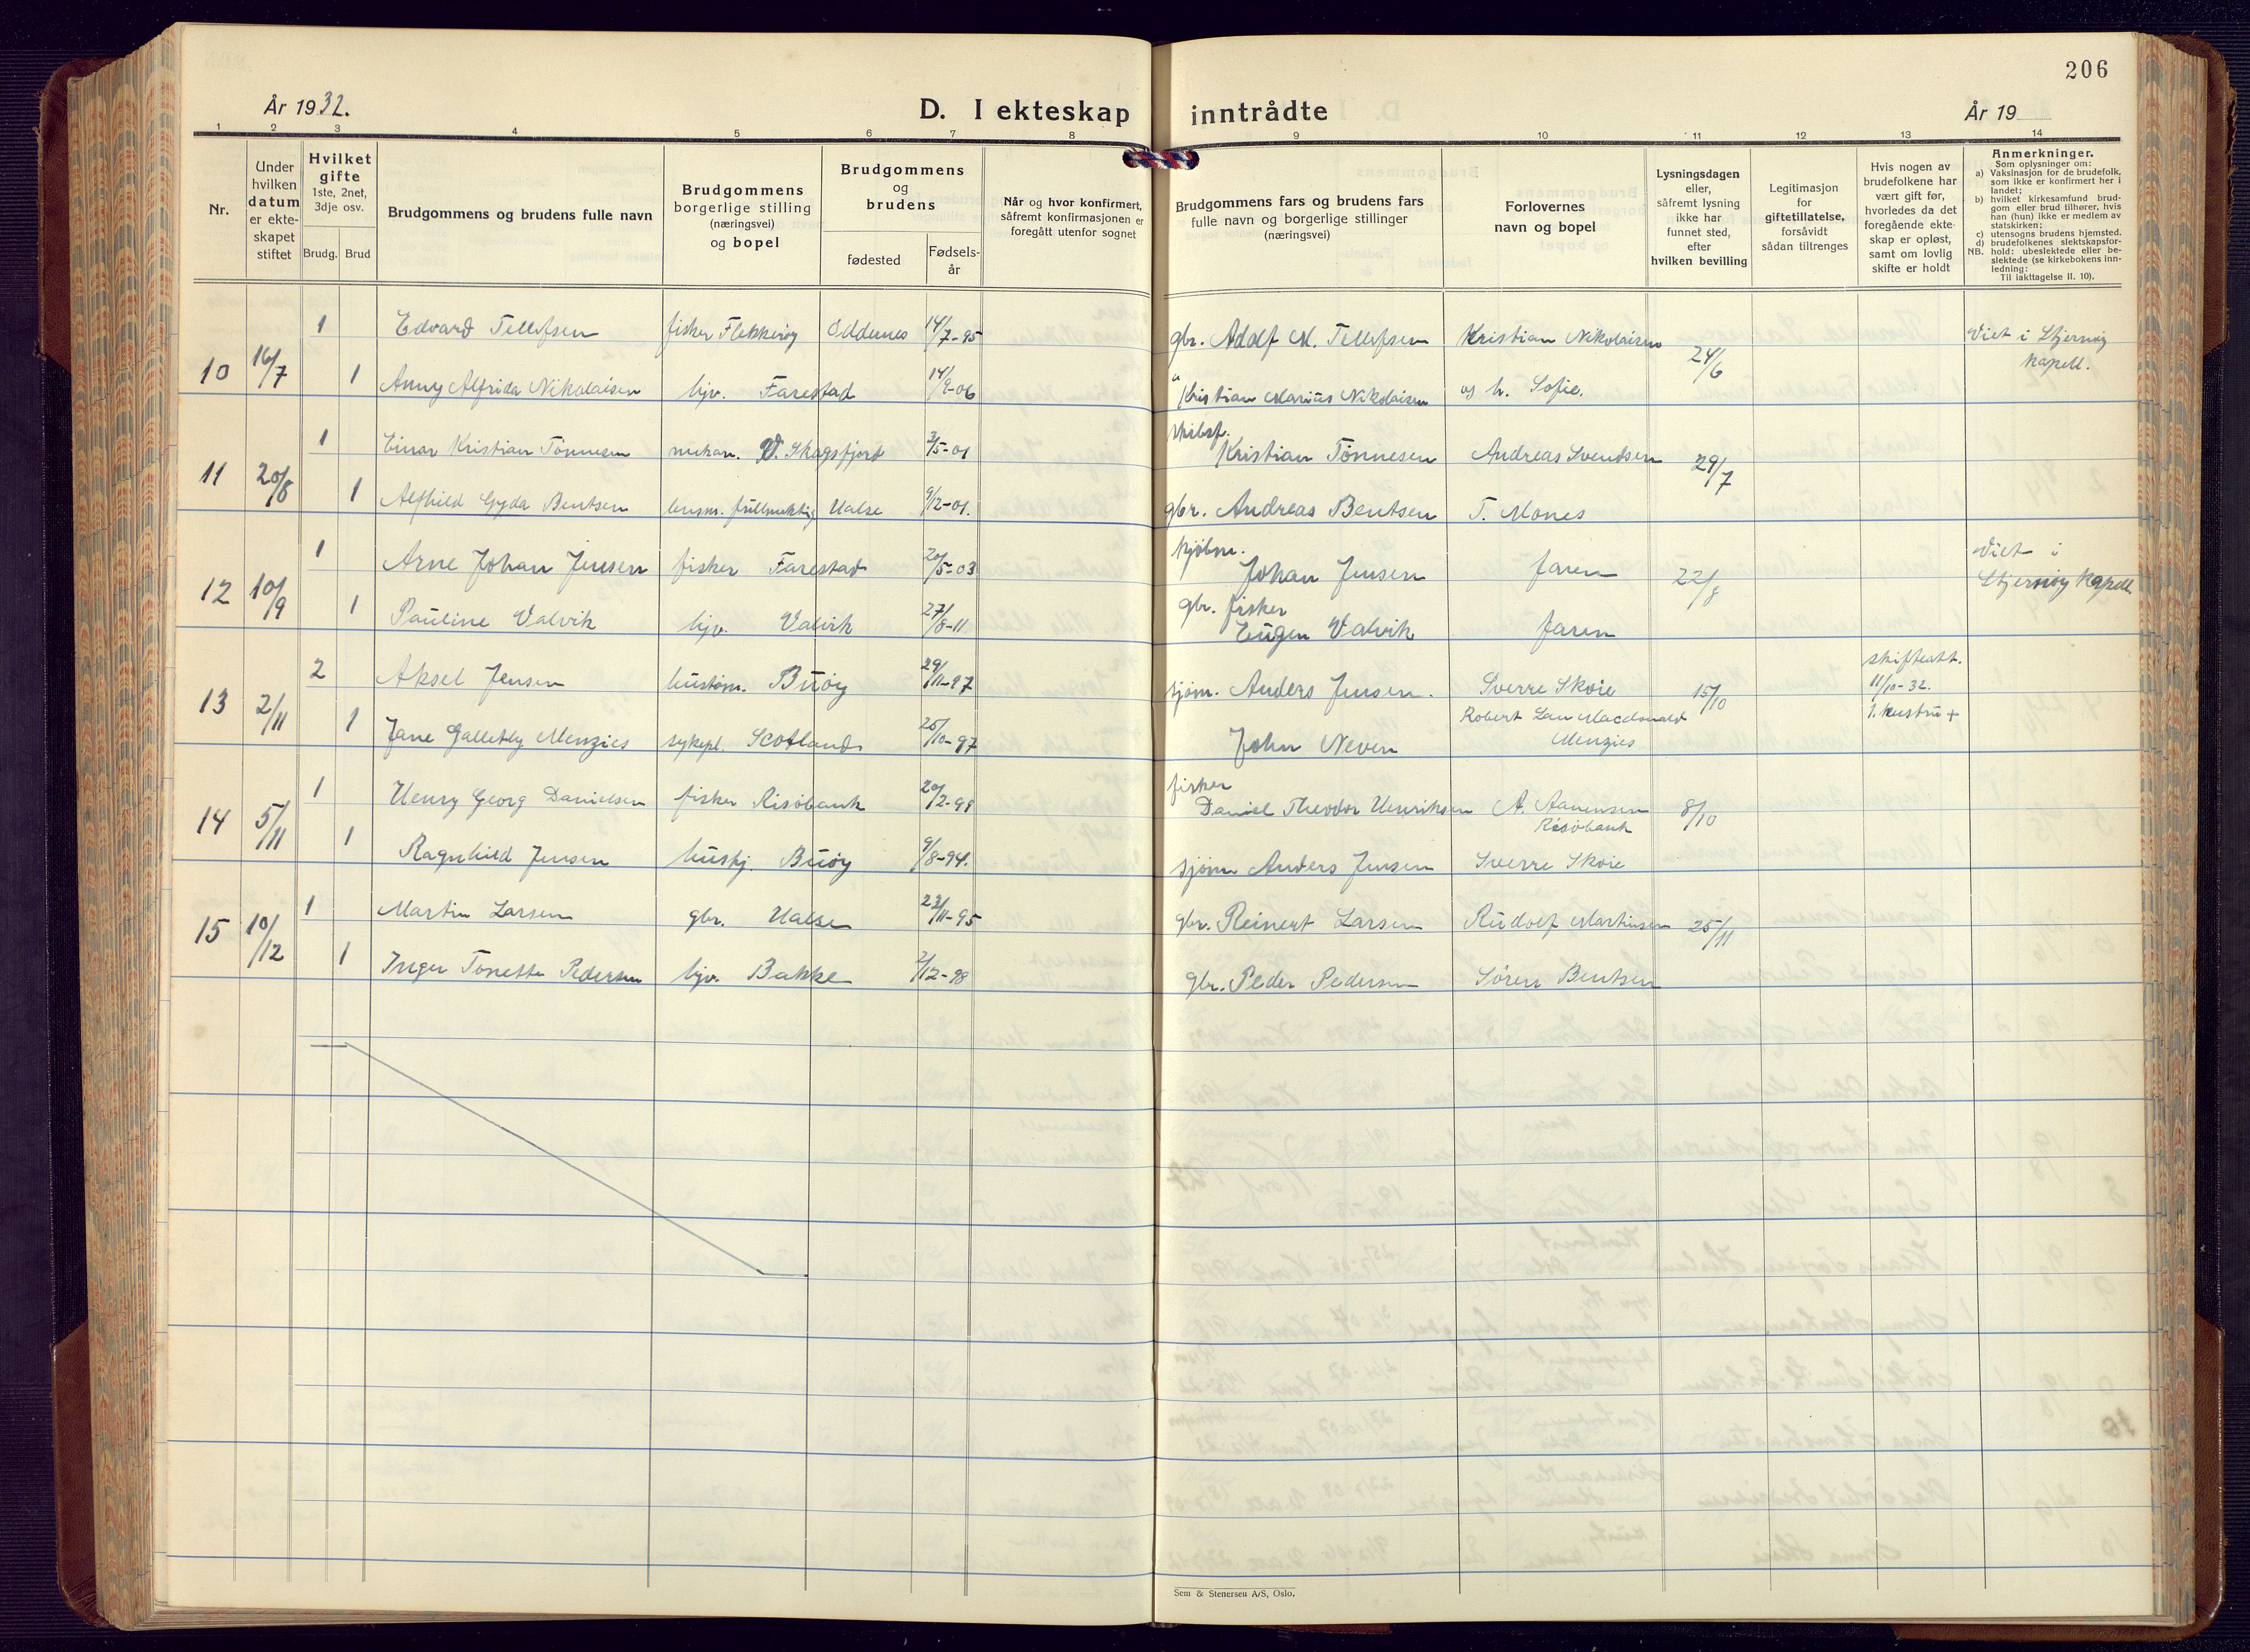 206
År 1932.
D. I ekteskap inntrådte
År 19
1 2 3 4 5 6 7 8 9 10 11 12 13 14
Nr.
Under hvilken datum er ekte- skapet stiftet
Hvilket gifte 1ste, 2net, 3dje osv.
Brudg. Brud
Brudgommens og brudens fulle navn
Brudgommens borgerlige stilling (næringsvei) og bopel
Brudgommens og brudens
fødested
Fødsels- år
Når og hvor konfirmert, såfremt konfirmasjonen er foregått utenfor sognet
Brudgommens fars og brudens fars fulle navn og borgerlige stillinger (næringsvei)
Forlovernes navn og bopel
Lysningsdagen eller, såfremt lysning ikke har funnet sted, efter hvilken bevilling
Legitimasjon for giftetillatelse, forsåvidt sådan tiltrenges
Hvis nogen av brudefolkene har vært gift før, hvorledes da det foregående ekte- skap er opløst, samt om lovlig skifte er holdt
Anmerkninger.
Som oplysninger om:
a) Vaksinasjon for de brudefolk, som ikke er konfirmert her i landet;
b) hvilket kirkesamfund brud- gom eller brud tilhører, hvis han (hun) ikke er medlem av statskirken;
c) utensogns brudens hjemsted.
d) brudefolkenes slektskapsfor-
NB. hold: ubeslektede eller be- slektede (se kirkebokens inn- ledning: Til iakttagelse II. 10).
10 16/7
1 Edvard Tellefsen fisker Flekkerøy Oddernes 14/7-95 gbr. Adolf M. Tellefsen Kristian Nikolaisen 24/6 Viet i Skjernøy kapell.
1 Anny Alfrida Nikolaisen hjv. Farestad 14/9-06 " Kristian Marius Nikolaisen og h. Sofie.
11 20/8
1 Einar Kristian Tønnesen mekan. V. Skogsfjord 3/5-01 skibsf. Kristian Tønnesen Andreas Svendsen 29/7
1 Alfhild Gyda Bentsen lensm. fullmektig Ualse 9/12-01. gbr. Andreas Bentsen T. Mones
12 10/9
1 Arne Johan Jensen fisker Farestad 20/5-03 kjøbm. Johan Jensen faren 22/8 Viet i Skjernøy kapell
1 Pauline Valvik hjv. Valvik 27/8-11 gbr. fisker Eugen Valvik faren
13 2/11
2 Aksel Jensen Buøy 29/11-97 sjøm. Anders Jensen. Sverre Skoie 15/10 skifteatt. 11/10-32. 1. hustru +
1 Jane Galletly Menzies sykepl. Scotland 25/10-97 John Neven Robert Ian Macdonald Menzies
14 5/11
1 Henry Georg Danielsen fisker Risøbank 20/2-99 fisker Daniel Theodor Henriksen A. Aanensen Risøbank 8/10
1 Ragnhild Jensen hushj. Buøy 9/8-94. sjøm Anders Jensen Sverre Skoie
15 10/12
1 Martin Larsen gbr. Ualse 23/11-95 gbr. Reinert Larsen Rudolf Martinsen 25/11
1 Inger Tonette Pedersen hjv. Bakke 2/12-98 gbr. Peder Pedersen Søren Bentsen
Sem & Stenersen A/S, Oslo.